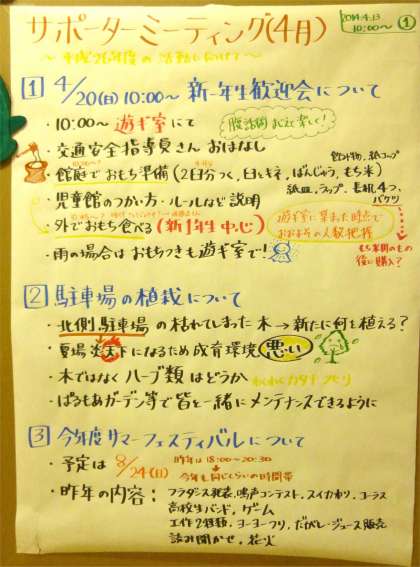 サポーターミーティング(4月)
2014.4.13
10:00〜
①
〜平成26年度の活動に向けて〜
1 4/20(日)10:00〜 新一年生歓迎会について
・10:00〜 遊ギ室にて
腹話術まじえて楽しく!
・交通安全指導員さん おはなし
・館庭でおもち準備(2臼分つく,臼とキネ,ばんじゅう,もち米)
飲み物,紙コップ
紙皿,ラップ,長机4つ,
バケツ
・児童館のつかい方・ルールなど説明
・外でおもち食べる(新1年生中心)
遊ギ室に集まった時点で
おおよその人数把握
もち米関のもの
後に購入?
・雨の場合はおもちつきも遊ギ室で!
2 駐車場の植栽について
・北側駐車場の枯れてしまった木→新たに何を植える?
・夏場炎天下になるため成育環境悪い
・木ではなくハーブ類はどうか
・ぱるもあガーデン等で皆と一緒にメンテナンスできるように
3 今年度サマーフェスティバルについて
・予定は 8/24(日)
昨年は18:00〜20:30
今年も同じくらいの時間帯
・昨年の内容:フラダンス発表,鳴声コンテスト,スイカわり,コーラス
高校生バンド,ゲーム
工作2種類,ヨーヨーつり,だがし・ジュース販売
読み聞かせ,花火